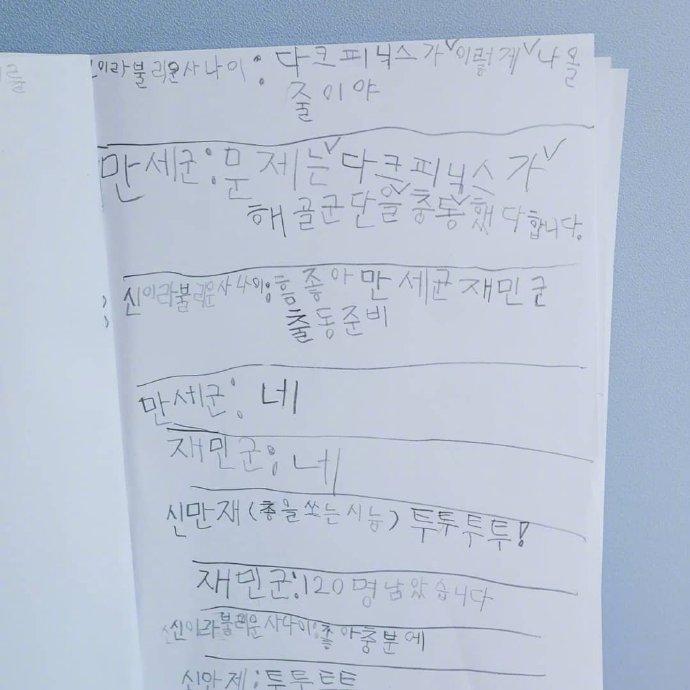 신이라불리운사나이: 다크피닉스가 이렇게 나올
줄이야
만세군: 문제는 다크피닉스가
해골군단을 충동했다합니다.
신이라불리운사나이: 흠좋아만세군재민군
출동준비
만세군: 네
재민군: 네
신만재(총을쏘는시늉)투투투투!
재민군:120명남았습니다
신이라불리운사나이:좋아충분에
신만제:투투트트